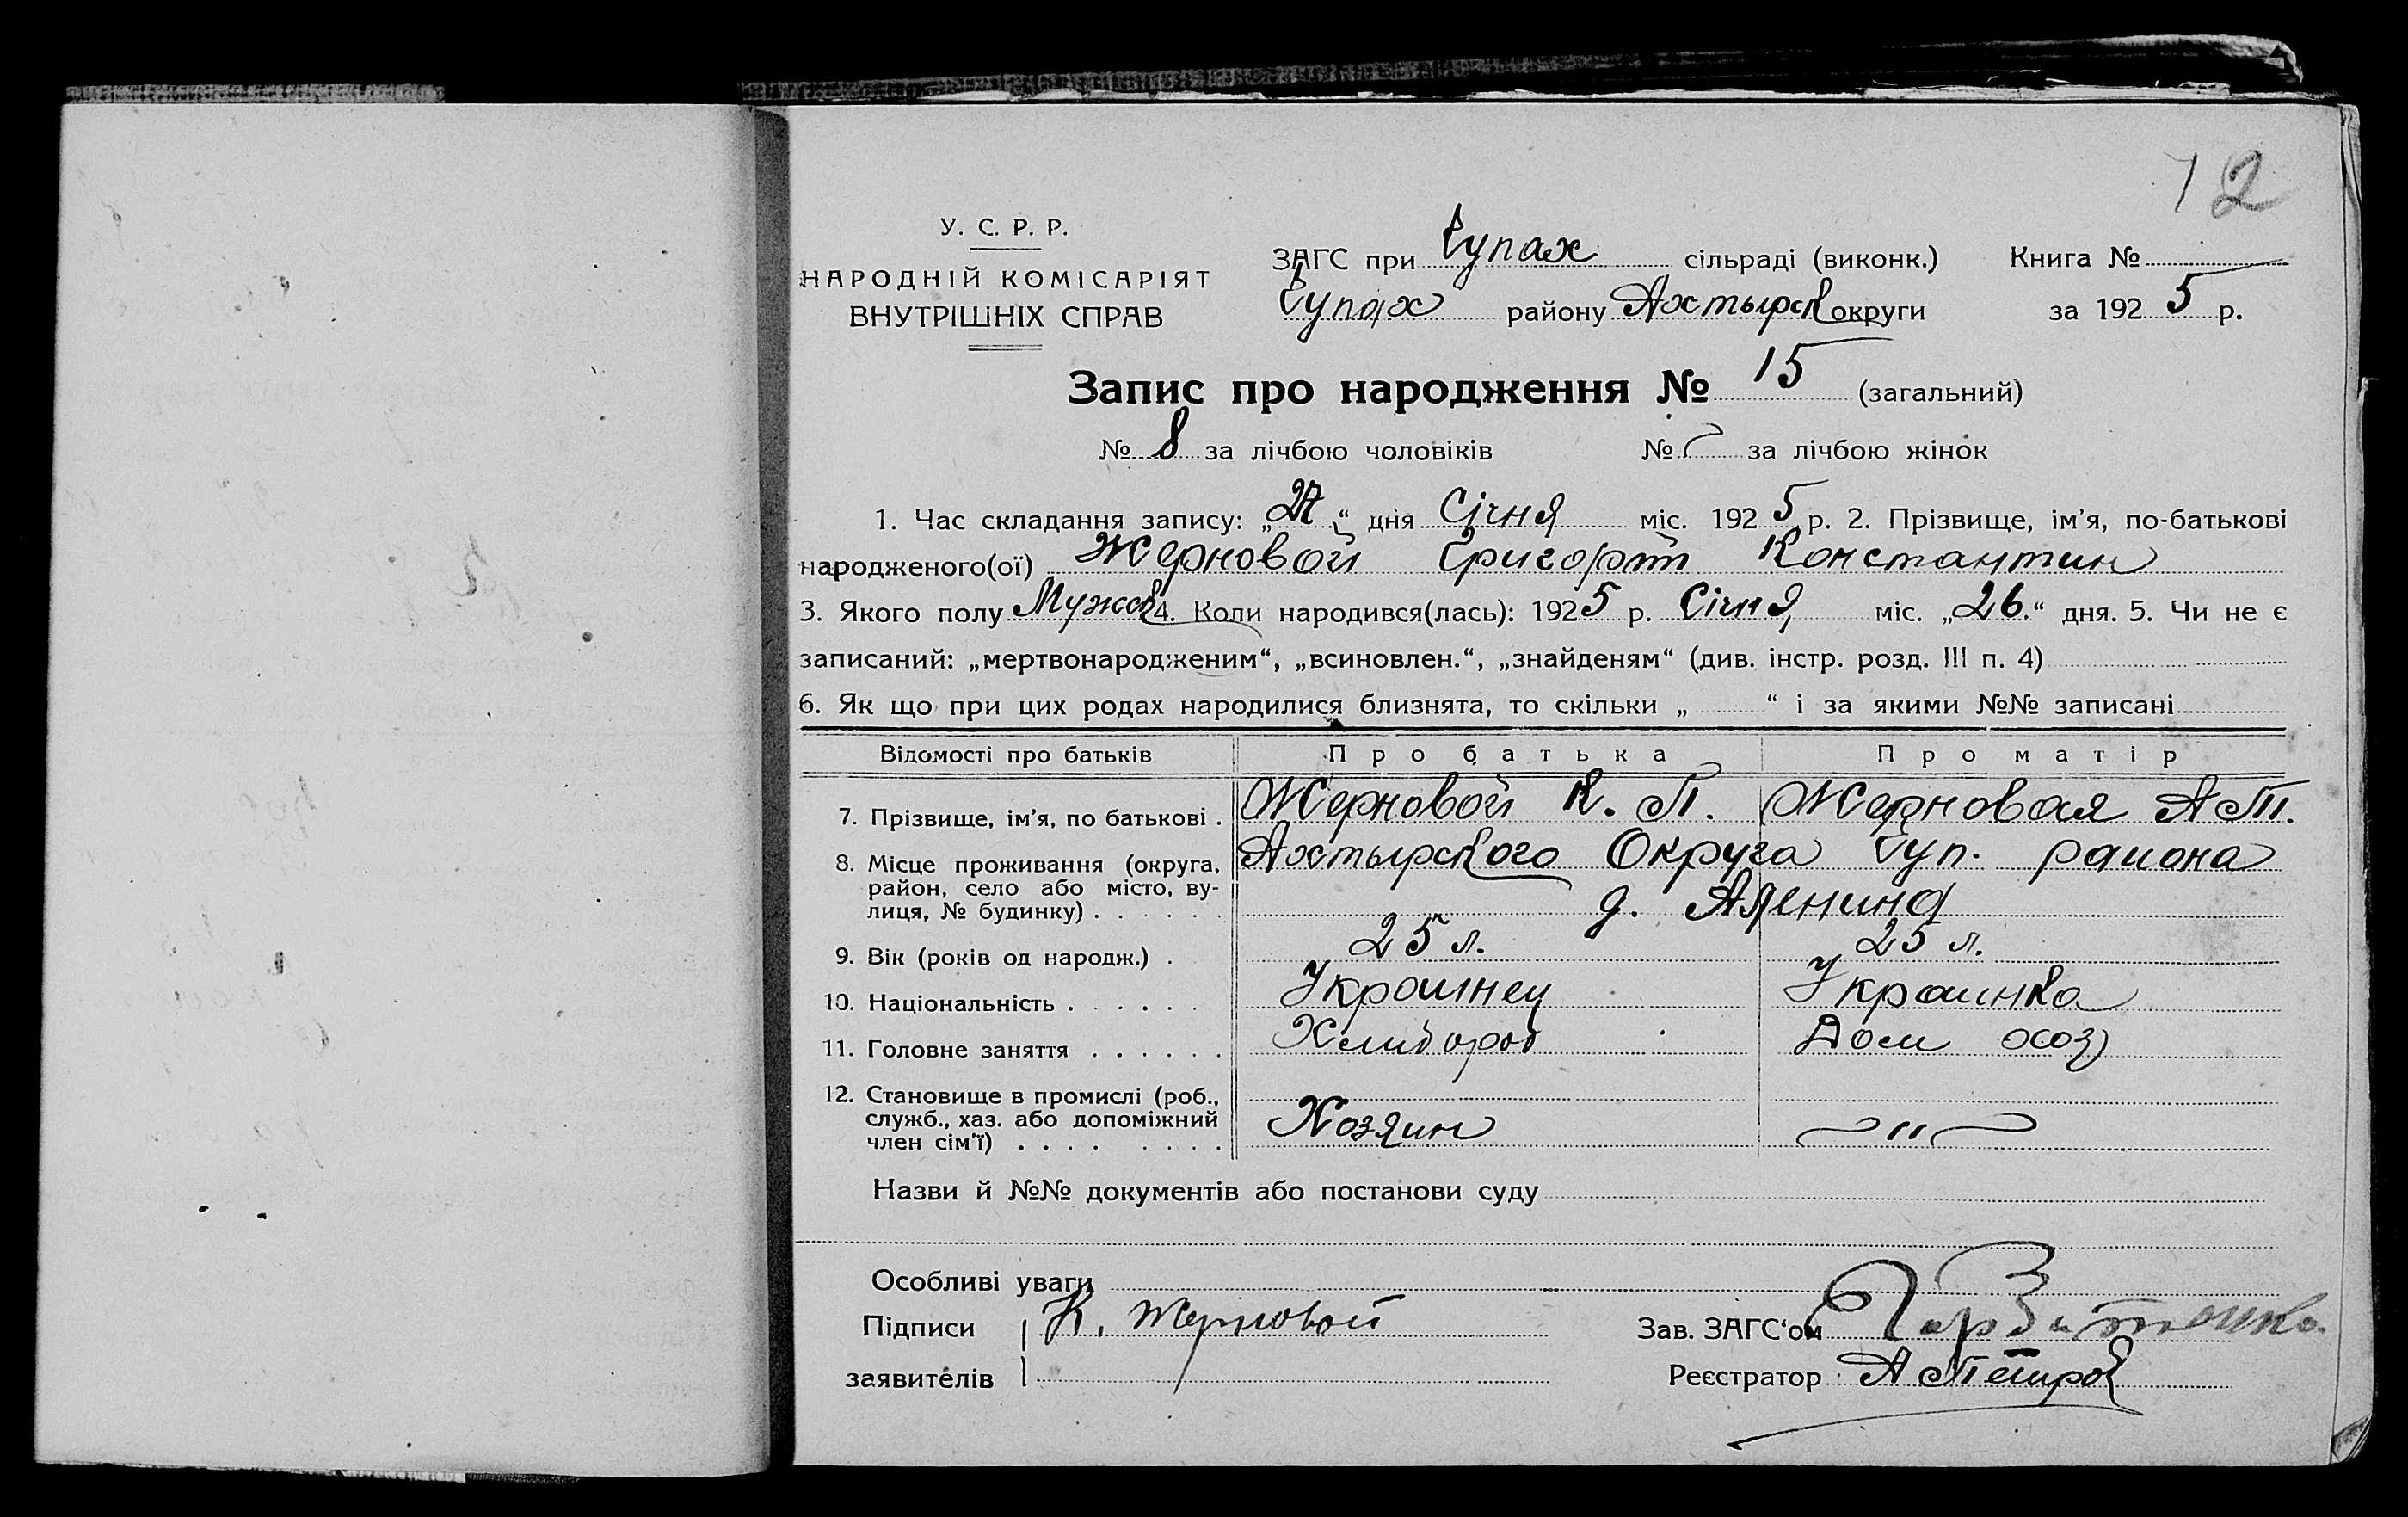 12
У. С. Р. Р.
НАРОДНІЙ КОМІСАРІЯТ
ВНУТРІШНІХ СПРАВ
ЗАГС при Чупах сільраді (виконк.) Книга №
Чупах району Ахтырск округи за 1925 р.
Запис про народження № 15 (загальний)
№ 8 за лічбою чоловіків № за лічбою жінок
1. Час складання запису: „27“ дня Січня міс. 1925 р. 2. Прізвище, ім’я, по-батькові
народженого(ої) Жерновой Григорій Константин
3. Якого полу Мужск 4. Коли народився(лась): 1925 р. Січня міс. „26.“ дня. 5. Чи не є
записаний: „мертвонародженим“, „всиновлен.“, „знайденям“ (див. інстр. розд. III п. 4)
6. Як що при цих родах народилися близнята, то скільки „ “ і за якими №№ записані
Відомості про батьків Про батька Про матір
7. Прізвище, ім’я, по батькові . Жерновой К. П. Жерновая А П.
8. Місце проживання (округа, Ахтырского Округа Чуп. района
район, село або місто, ву-
лиця, № будинку) . . . . . . д.
9. Вік (років од народж.) . 25 л. 25 л.
10. Національність . . . . . . Украинец Украинка
11. Головне заняття . . . . . . Хлибороб Дом хоз
12. Становище в промислі (роб.,
служб., хаз. або допоміжний Хозяин — " —
член сім’ї) . . . . . . . .
Назви й №№ документів або постанови суду
Особливі уваги
Підписи К. Жерновой Зав. ЗАГС‘ом
заявителів Реєстратор А Петров